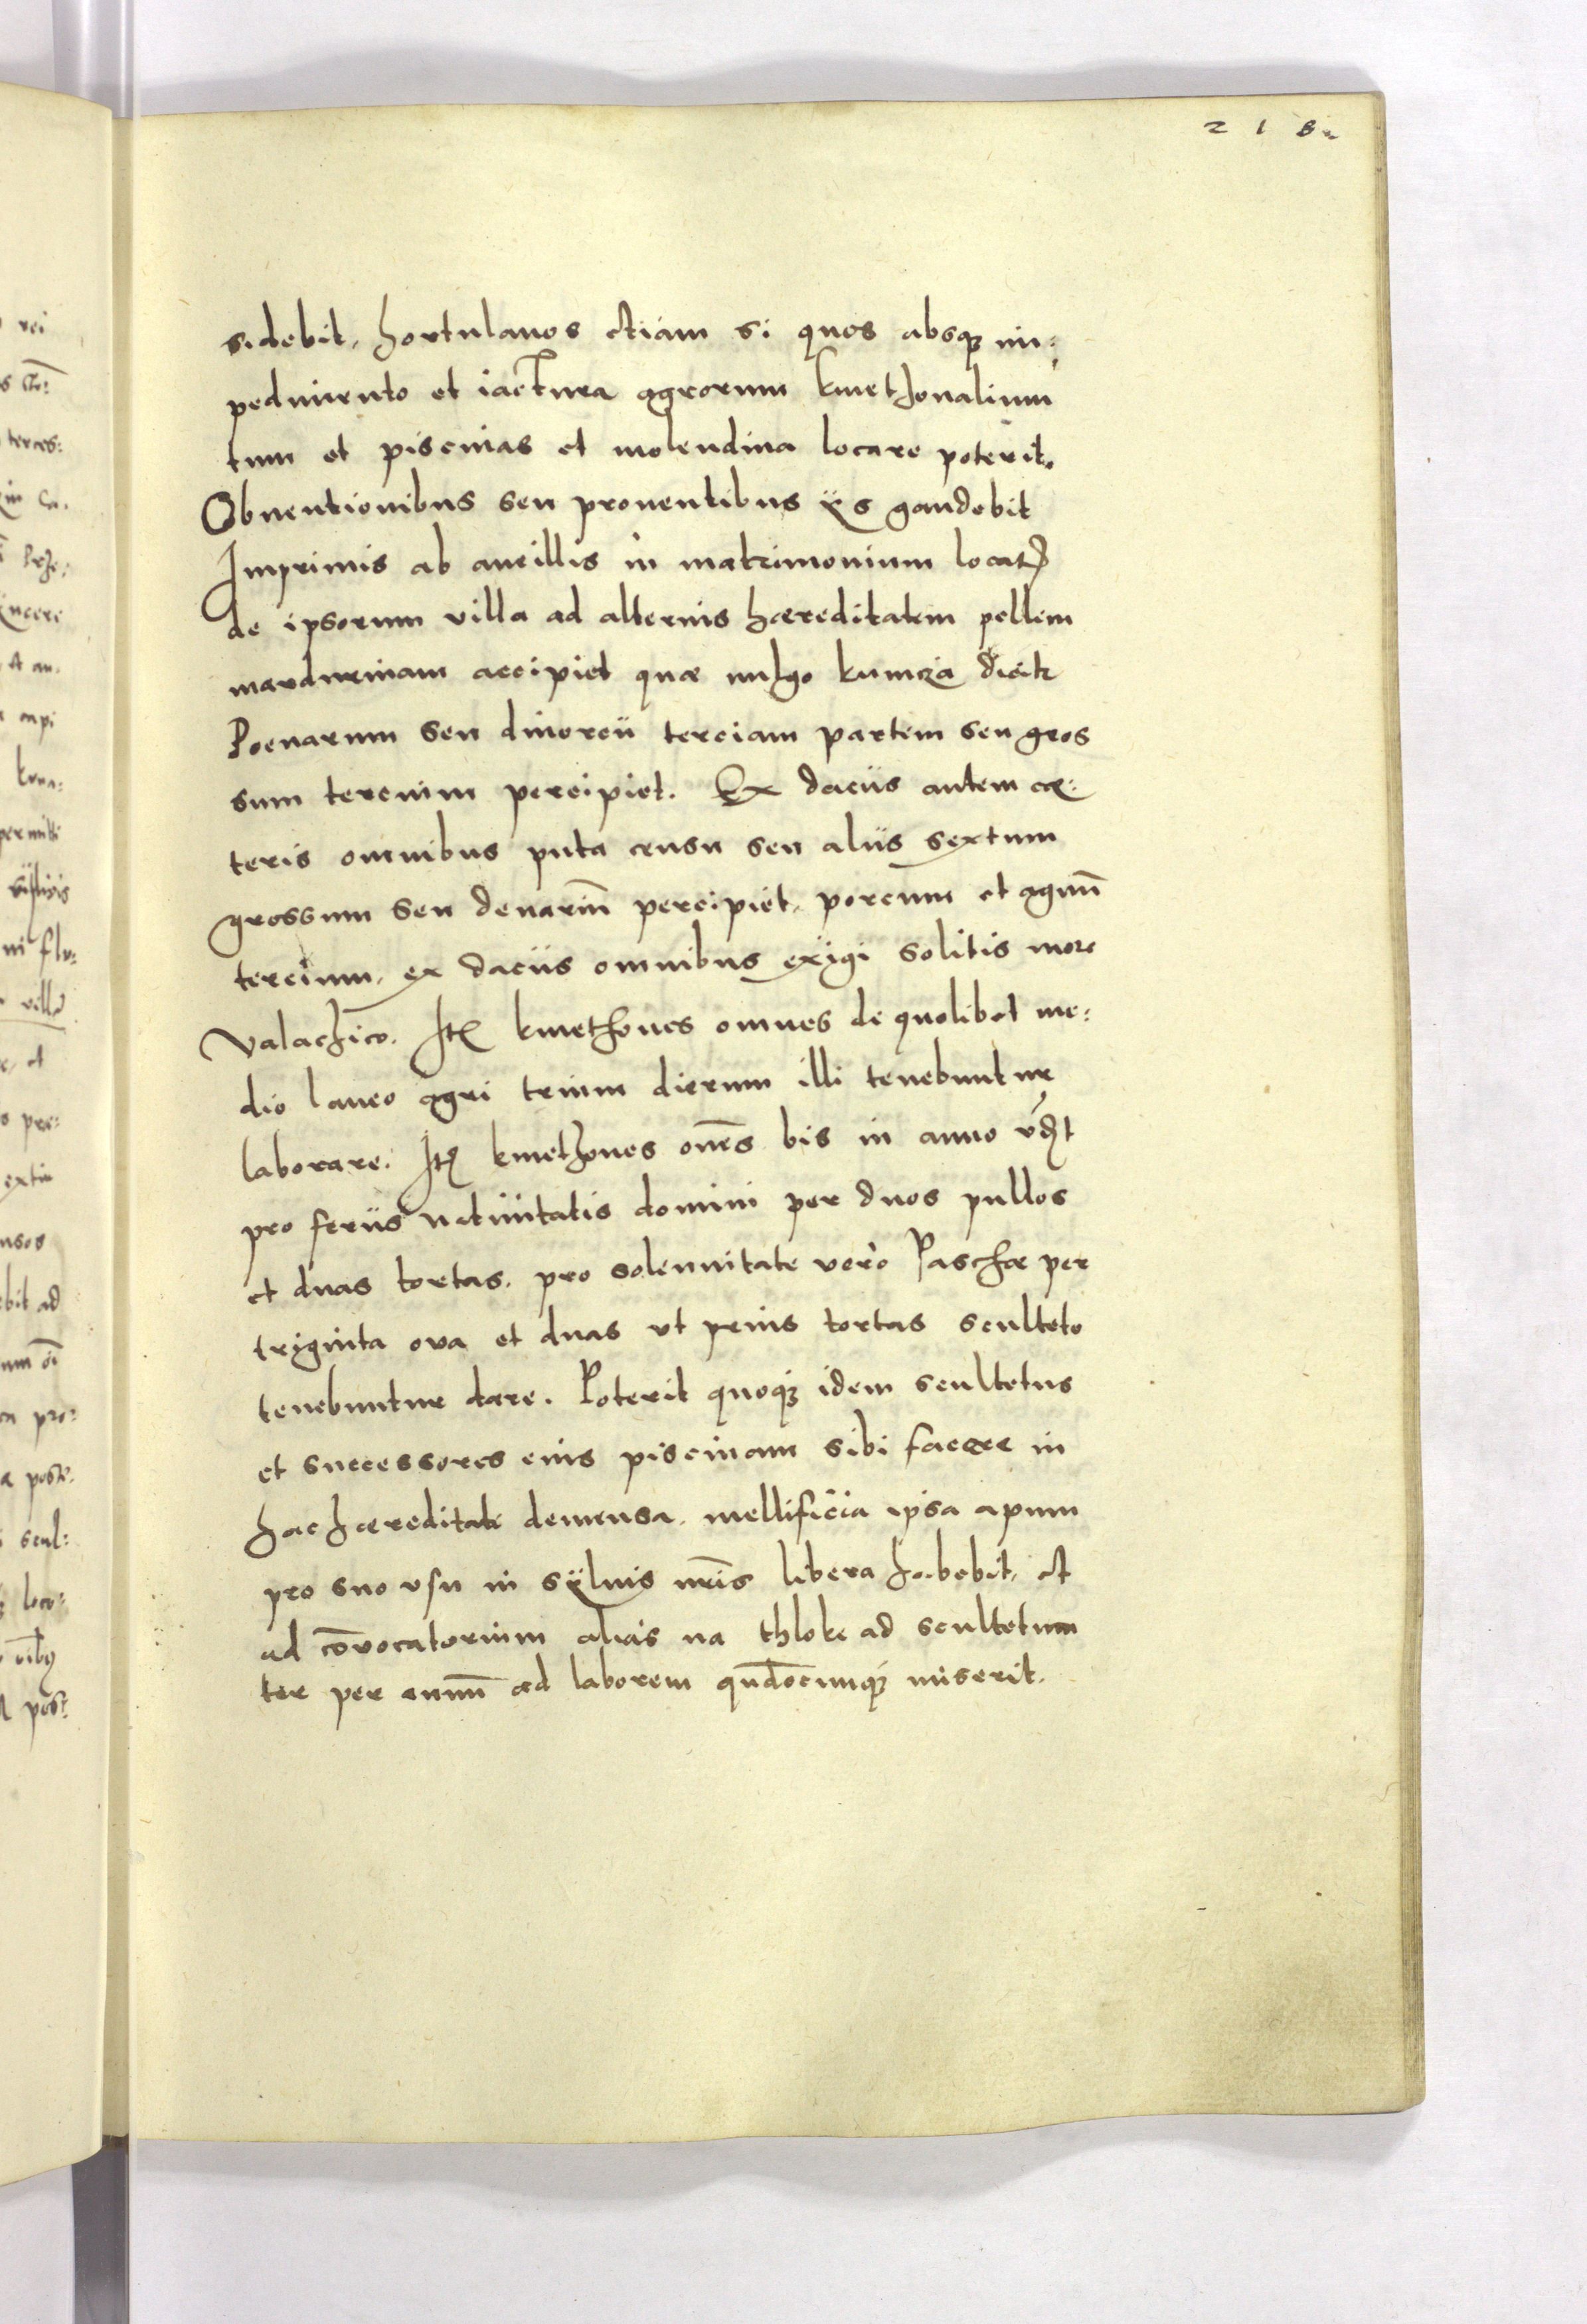 218
sidebit, hortulanos etiam si quos absq; im:
pedimento et iactura agrorum kmethonalium
tum et piscinas et molendina locare poterit.
Obuentionibus seu prouentibus ijs gaudebit
Imprimis ab ancillis in matrimonium locat(is)
de ipsorum villa ad alterius hæreditatem pellem
mardurinam accipiet quæ uulgo kuniczа dicit(ur)
Poenarum seu diuorcii terciam partem seu gros
sum tercium percipiet. Ex daciis autem cæ:
teris omnibus puta censu seu aliis sextum
grossum seu denariū percipiet, porcum et agnū
tercium, ex daciis omnibus exigi solitis more
Valachico. It(em) kmethones omnes de quolibet me:
dio laneo agri trium dierum illi tenebuntur
laborare. It(em) kmethones om̄es bis in anno
pro feriis natiuitatis domini per duos pullos
et duas tortas, pro solennitate vero Paschæ per
triginta ova et duas ut prius tortas sculteto
tenebuntur dare. Poterit quoq; idem scultetus
et successores eius piscinam sibi facere in
hac hæreditate demensa, mellificia ipsa apum
pro suo usu in syluis nr̄is libera habebit, et
ad cōvocatorium alias na thloke ad scultetum
ter per annū ad laborem quādocunq; miserit.